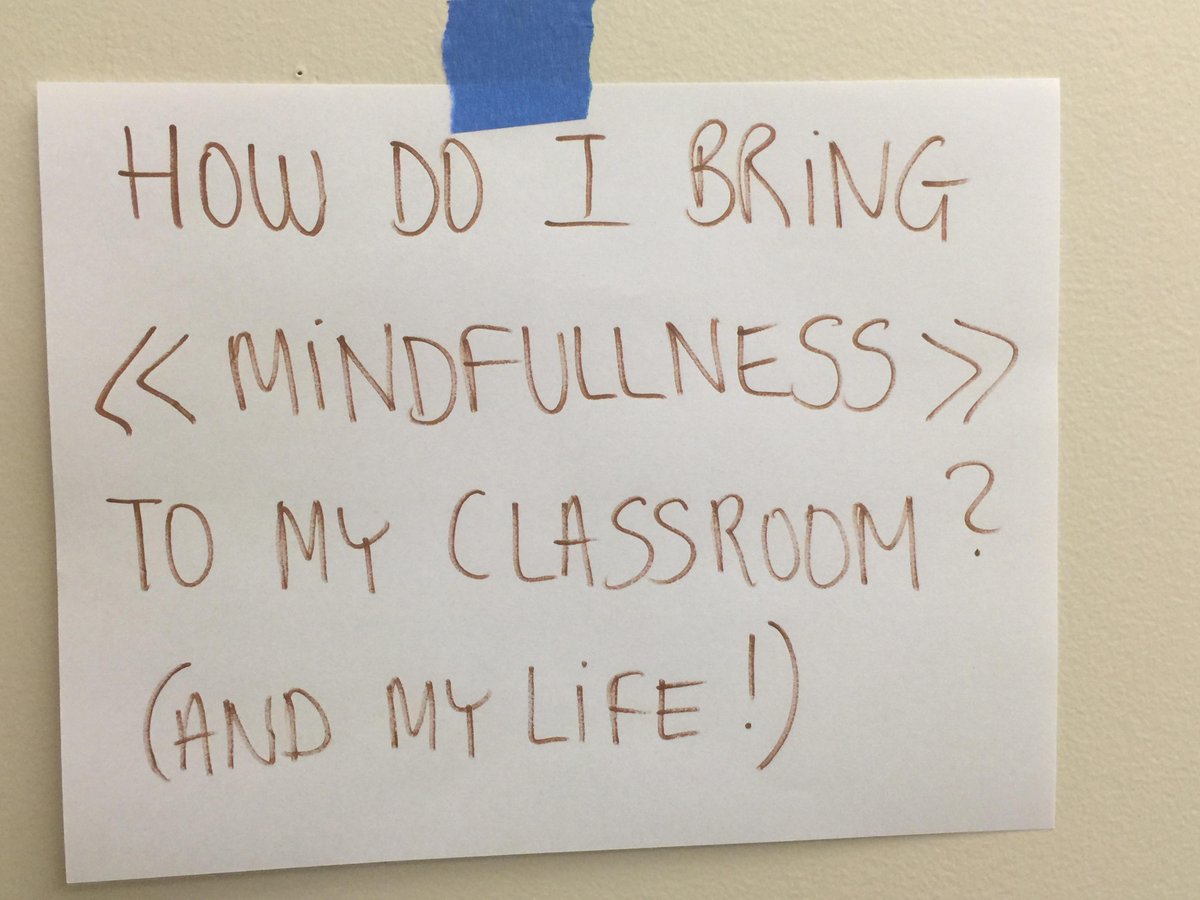 HOW DO I BRING
« MINDFULLNESS »
TO MY CLASSROOM?
(AND MY LIFE!)